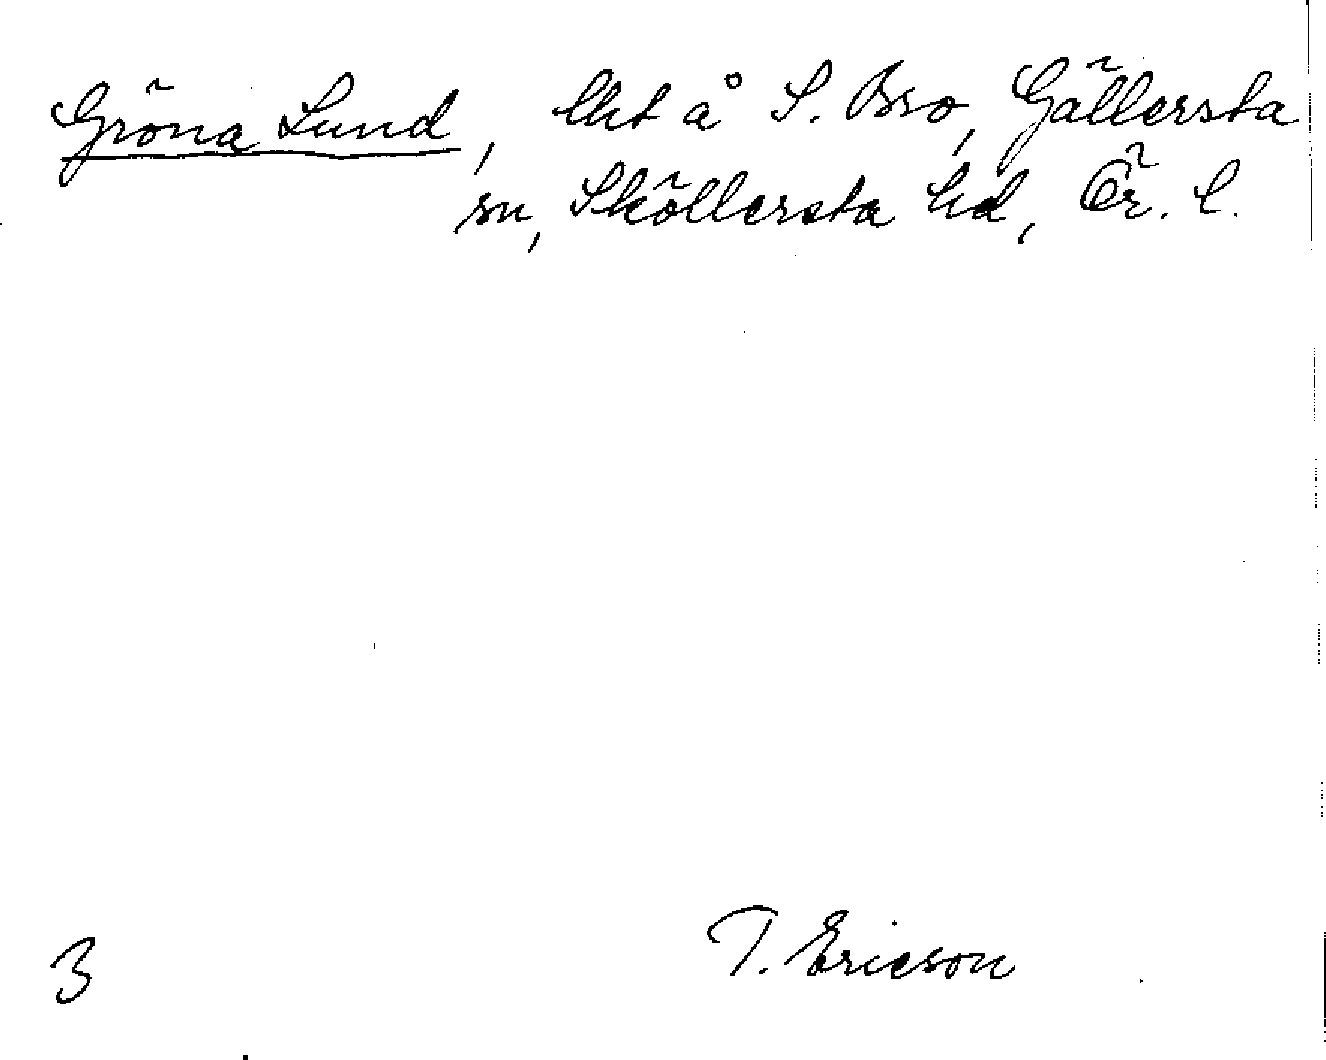 Gröna Lund, lht å S. Bro, Gällersta
sn, Sköllersta hd, Ör. l.
T. Ericson
3